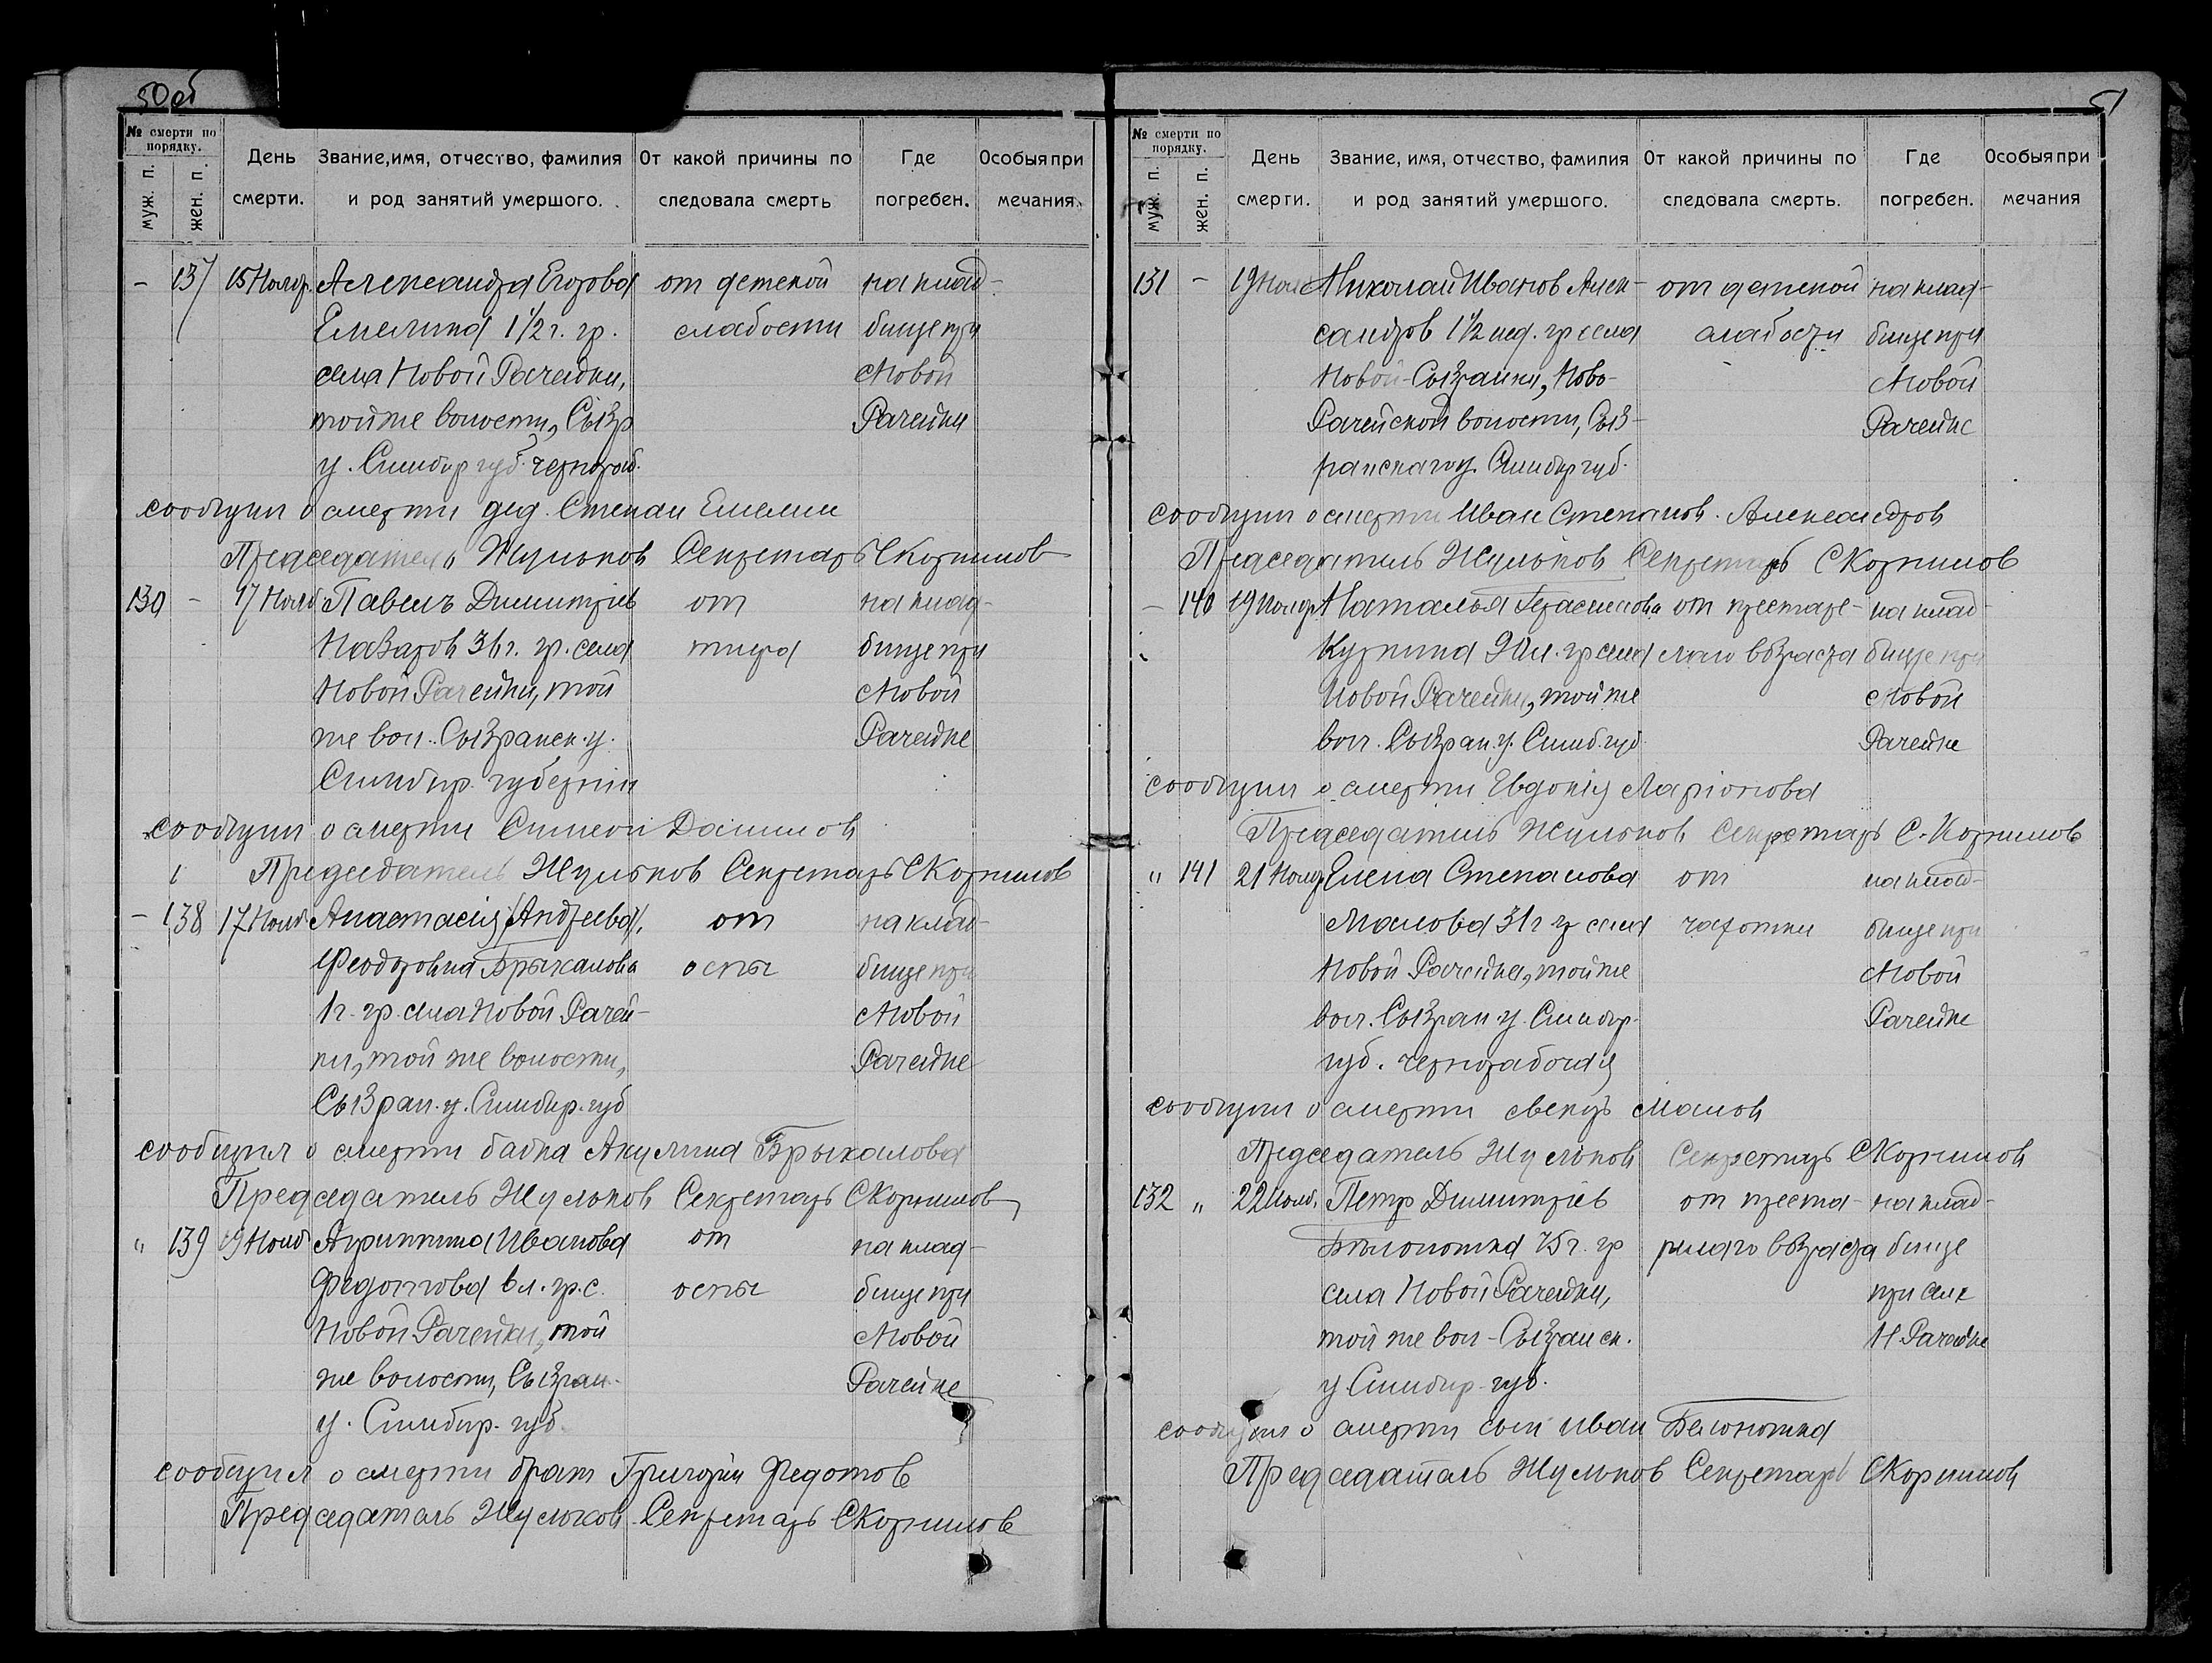 50об
№ смерти по порядку.
муж. п.
жен. п.
День смерти.
Звание, имя, отчество, фамилия и род занятий умершого.
От какой причины последовала смерть
Где погребен.
Особыя примечания.
– 137 15 Нояб. Александра Егорова от детской на клад-
Емелина 1½ г. гр. слабости бище при
села Новой Рачейки, Новой
той же волости, Сызр Рачейки
у. Симбир губ. чернораб.
сообщил о смерти дед. Степан Емелин
Председатель Жульков Секретарь С Корнилов
130 – 17 Нояб Павелъ Димитріев от на клад-
Назаров 36 г. гр. села тифа бище при
Новой Рачейки, той Новой
же вол. Сызранск. у. Рачейке
Симбир. губерніи
сообщил о смерти Симеон Данилов
Председатель Жульков Секретарь С Корнилов
– 138 17 Нояб Анастасія (Андреева), от на клад-
Феодоровна Брыкалова оспы бище при
1 г. гр. села Новой Рачей- Новой
ки, той же волости, Рачейке
Сызран. у. Симбир. губ
сообщил о смерти бабка Акулина Брыкалова
Председатель Жульков Секретарь С Корнилов
" 139 19 Нояб Агрипина Иванова от на клад-
Федотова 6 л. гр. с. оспы бище при
Новой Рачейки, той Новой
же волости, Сызран- Рачейке
у. Симбир. губ.
сообщил о смерти брат Григорій Федотов
Председатель Жульков Секретарь С Корнилов
51
№ смерти по порядку.
муж. п.
жен. п.
День смерти.
Звание, имя, отчество, фамилия и род занятий умершого.
От какой причины последовала смерть.
Где погребен.
Особыя примечания
131 – 19 Ноя Николай Иванов Алек- от детской на клад-
сандров 1½ нед. гр села слабости бище при
Новой-Сызранки, Ново- Новой
Рачейской волости, Сыз- Рачейке
ранскаго у. Симбир губ.
сообщил о смерти Иван Степанов. Александров
Председатель Жульков Секретарь С Корнилов
– 140 19 Нояб Наталья Герасимова от престаре- на клад-
Куркина 90 л. гр села лаго возраста бище при
Новой Рачейки, той же Новой
вол. Сызран. у. Симб. губ Рачейке
сообщил о смерти Евдокія Ларіонова
Председатель Жульков Секретарь С. Корнилов
" 141 21 Нояб Елена Степанова от на клад-
Малова 31 г гр села чахотки бище при
Новой Рачейки, той же Новой
вол. Сызран у. Симбир. Рачейке
губ. чернорабочая
сообщил о смерти свекръ Малов
Председатель Жульков Секретарь С Корнилов
132 " 22 Нояб. Петр Димитріев от преста- на клад-
Белоножка 75 г. гр релаго возраста бище
села Новой Рачейки, при селе
той же вол- Сызранск. Н Рачейке
у Симбир- губ.
сообщил о смерти сын Иван Белоножка
Председатель Жульков Секретарь С Корнилов